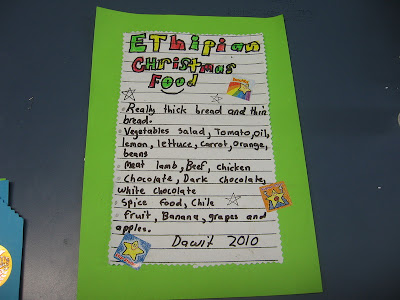 EThipian
Christmas
Food
Really thick bread and thin
bread.
Vegetables salad, Tomato, oil,
lemon, lettuce, carrot, orange,
beans
Meat lamb, Beef, chicken
Chocolate, Dark chocolate,
white chocolate
Spice food, Chile
fruit, Banana, grapes and
apples.
Dawit 2010